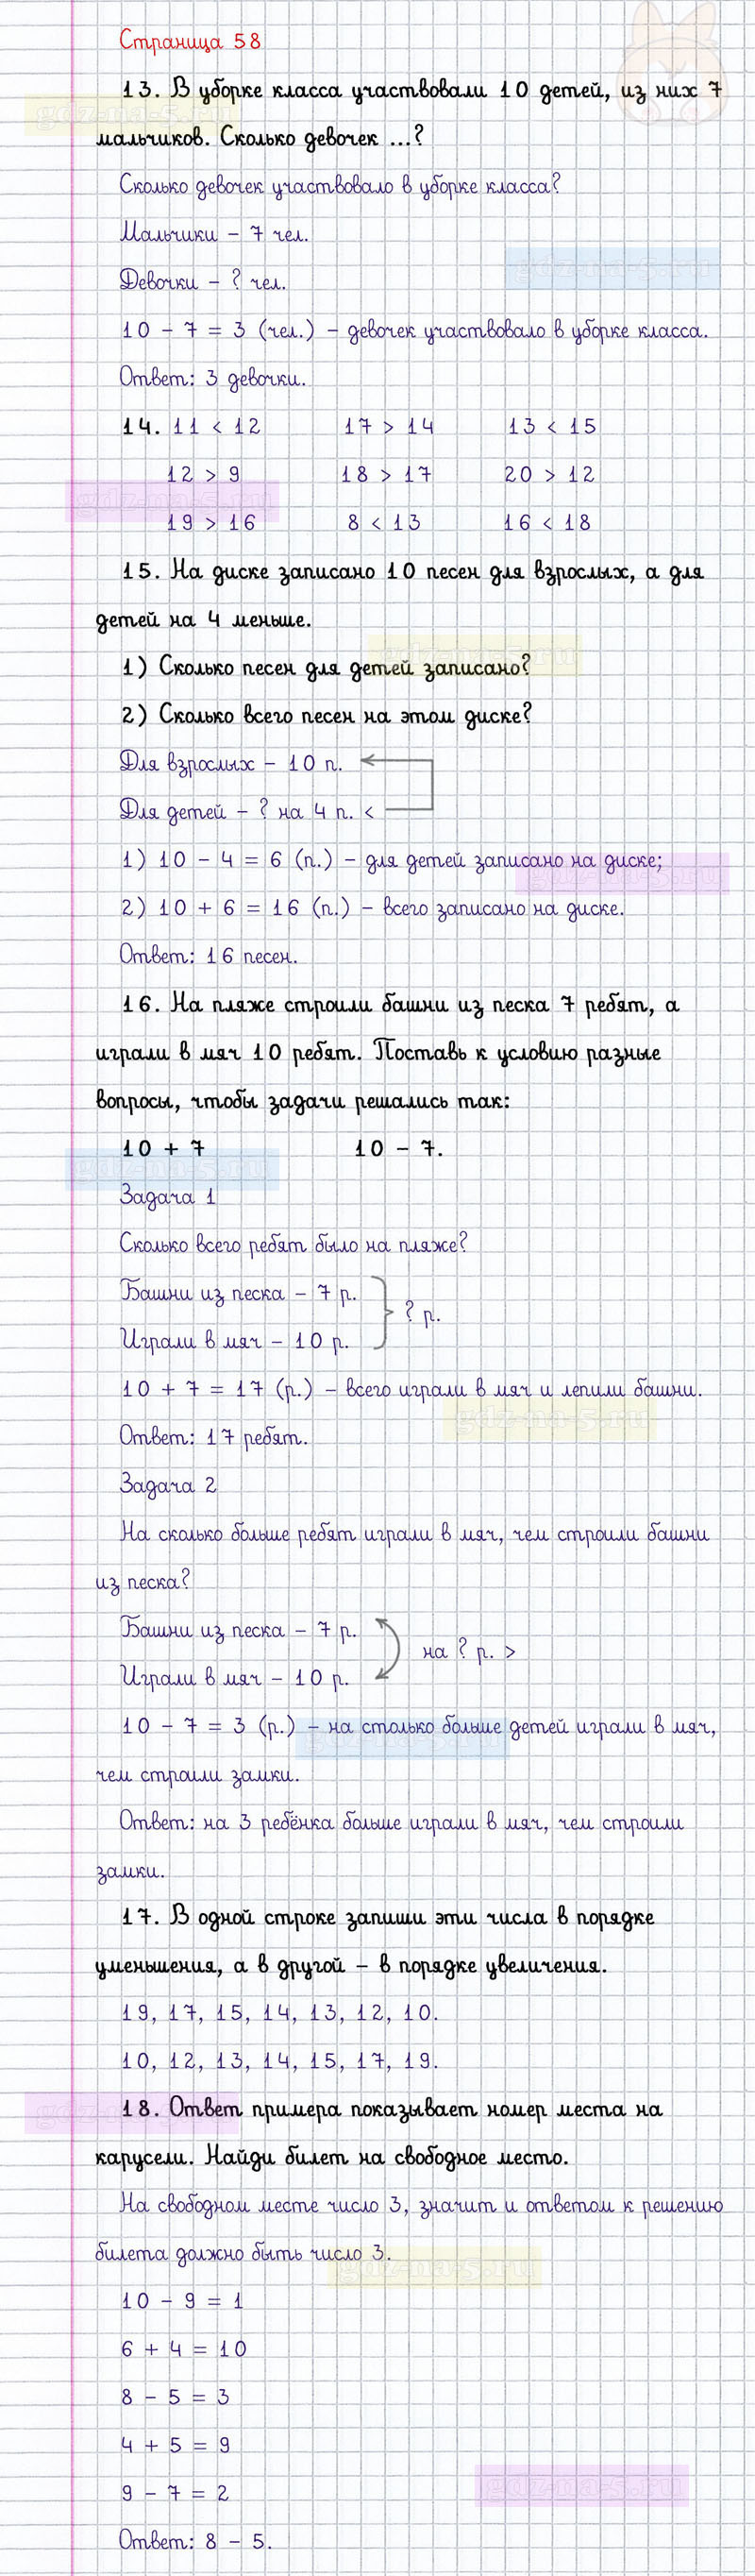 Страница 58
13. В уборке класса участвовали 10 детей, из них 7
gdz-na-5.ru
мальчиков. Сколько девочек ...?
Сколько девочек участвовало в уборке класса?
Мальчики – 7 чел.
gdz-na-5.ru
Девочки – ? чел.
10 – 7 = 3 (чел.) – девочек участвовало в уборке класса.
Ответ: 3 девочки.
14. 11 < 12 17 > 14 13 < 15
12 > 9 18 > 17 20 > 12
gdz-na-5.ru
19 > 16 8 < 13 16 < 18
15. На диске записано 10 песен для взрослых, а для
детей на 4 меньше.
gdz-na-5.ru
1) Сколько песен для детей записано?
2) Сколько всего песен на этом диске?
Для взрослых – 10 п.
Для детей – ? на 4 п. <
1) 10 – 4 = 6 (п.) – для детей записано на диске;
gdz-na-5.ru
2) 10 + 6 = 16 (п.) – всего записано на диске.
Ответ: 16 песен.
16. На пляже строили башни из песка 7 ребят, а
играли в мяч 10 ребят. Поставь к условию разные
вопросы, чтобы задачи решались так:
10 + 7 10 – 7.
gdz-na-5.ru
Задача 1
Сколько всего ребят было на пляже?
Башни из песка – 7 р.
? р.
Играли в мяч – 10 р.
10 + 7 = 17 (р.) – всего играли в мяч и лепили башни.
gdz-na-5.ru
Ответ: 17 ребят.
Задача 2
На сколько больше ребят играли в мяч, чем строили башни
из песка?
Башни из песка – 7 р.
на ? р. >
Играли в мяч – 10 р.
10 – 7 = 3 (р.) – на столько больше детей играли в мяч,
gdz-na-5.ru
чем строили замки.
Ответ: на 3 ребёнка больше играли в мяч, чем строили
замки.
17. В одной строке запиши эти числа в порядке
уменьшения, а в другой – в порядке увеличения.
19, 17, 15, 14, 13, 12, 10.
10, 12, 13, 14, 15, 17, 19.
gdz-na-5.ru
18. Ответ примера показывает номер места на
карусели. Найди билет на свободное место.
На свободном месте число 3, значит и ответом к решению
билета должно быть число 3.
gdz-na-5.ru
10 – 9 = 1
6 + 4 = 10
8 – 5 = 3
4 + 5 = 9
9 – 7 = 2
gdz-na-5.ru
Ответ: 8 – 5.